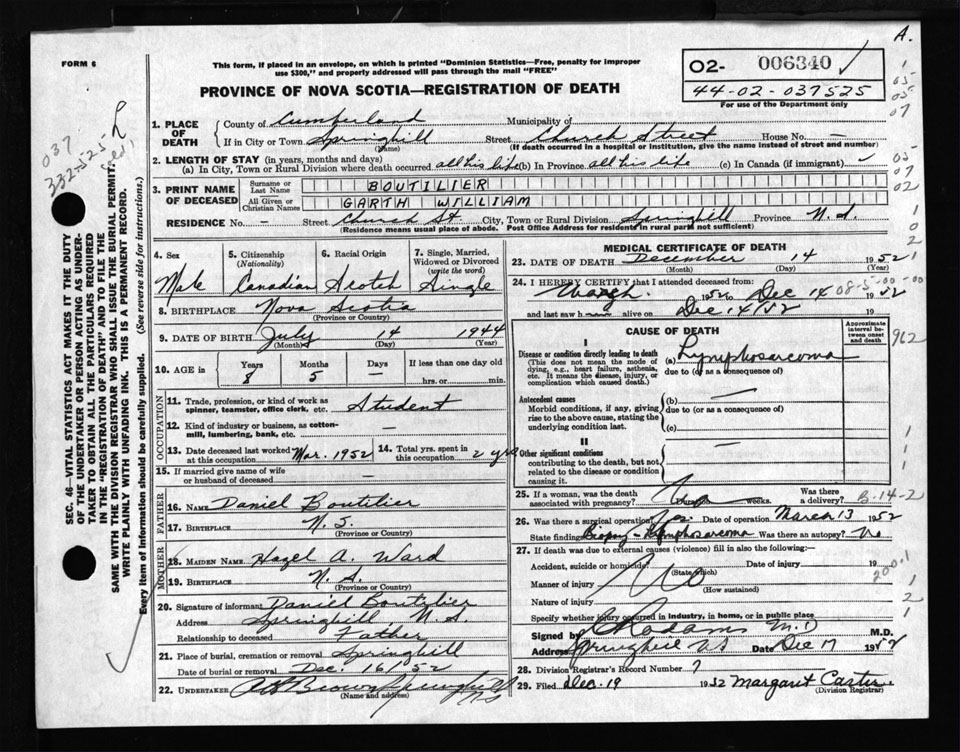 A.
FORM 6
This form, if placed in an envelope, on which is printed "Dominion Statistics—Free, penalty for improper
use $300," and properly addressed will pass through the mail "FREE"
O2- 006340
44-02-037525
For use of the Department only
PROVINCE OF NOVA SCOTIA—REGISTRATION OF DEATH
1. PLACE OF DEATH
County of Cumberland Municipality of
If in City or Town Springhill Street Church Street House No. —
(Name) (If death occurred in a hospital or institution, give the name instead of street and number)
2. LENGTH OF STAY (in years, months and days)
(a) In City, Town or Rural Division where death occurred all his life (b) In Province all his life (c) In Canada (if immigrant)
3. PRINT NAME OF DECEASED
Surname or Last Name BOUTILIER
All Given or Christian Names GARTH WILLIAM
RESIDENCE No. — Street Church St. City, Town or Rural Division Springhill Province N.S.
(Residence means usual place of abode. Post Office Address for residents in rural parts not sufficient)
4. Sex Male
5. Citizenship (Nationality) Canadian
6. Racial Origin Scotch
7. Single, Married, Widowed or Divorced (write the word) Single
8. BIRTHPLACE Nova Scotia
(Province or Country)
9. DATE OF BIRTH July 14 1944
(Month) (Day) (Year)
10. AGE in Years 8 Months 5 Days — If less than one day
hrs. or min.
OCCUPATION
11. Trade, profession, or kind of work as
spinner, teamster, office clerk, etc. Student
12. Kind of industry or business, as cotton-
mill, lumbering, bank, etc. —
13. Date deceased last worked at this occupation Mar. 1952
14. Total yrs. spent in this occupation 2 yrs
15. If married give name of wife
or husband of deceased
FATHER
16. NAME Daniel Boutilier
17. BIRTHPLACE N.S.
(Province or Country)
MOTHER
18. MAIDEN NAME Hazel A. Ward
19. BIRTHPLACE N.S.
(Province or Country)
20. Signature of informant Daniel Boutilier
Address Springhill N.S.
Relationship to deceased Father
21. Place of burial, cremation or removal Springhill
Date of burial or removal Dec. 16/52
22. UNDERTAKER Brown Springhill NS
(Name and address)
MEDICAL CERTIFICATE OF DEATH
23. DATE OF DEATH December 14 1952
(Month) (Day) (Year)
24. I HEREBY CERTIFY that I attended deceased from:
March 1952 to Dec 14 1952
and last saw h alive on Dec 14/52 19
CAUSE OF DEATH
Approximate interval between onset and death
I
Disease or condition directly leading to death
(This does not mean the mode of
dying, e.g., heart failure, asthenia,
etc. It means the disease, injury, or
complication which caused death.)
(a) Lymphosarcoma
due to (or as a consequence of)
Antecedent causes
Morbid conditions, if any, giving
rise to the above cause, stating the
underlying condition last.
(b) —
due to (or as a consequence of)
(c)
II
Other significant conditions
contributing to the death, but not
related to the disease or condition
causing it.
—
25. If a woman, was the death
associated with pregnancy? No (Duration) weeks. Was there a delivery?
B-14-2
26. Was there a surgical operation? Yes Date of operation March 13 1952
State findings Biopsy - Lymphosarcoma Was there an autopsy? No
27. If death was due to external causes (violence) fill in also the following:
Accident, suicide or homicide? No Date of injury 19
(State which)
Manner of injury
(How sustained)
Nature of injury
Specify whether injury occurred in industry, in home, or in public place
Signed by Adams M.D. M.D.
Address Springhill NS Date Dec 17 19
28. Division Registrar's Record Number 7
29. Filed Dec. 19 1952 Margaret Carter
(Division Registrar)
962
200.1
SEC. 46—VITAL STATISTICS ACT MAKES IT THE DUTY
OF THE UNDERTAKER OR PERSON ACTING AS UNDER-
TAKER TO OBTAIN ALL THE PARTICULARS REQUIRED
IN THE "REGISTRATION OF DEATH" AND TO FILE THE
SAME WITH THE DIVISION REGISTRAR WHO SHALL ISSUE THE BURIAL PERMIT.
WRITE PLAINLY WITH UNFADING INK. THIS IS A PERMANENT RECORD.
Every item of information should be carefully supplied. (See reverse side for instructions.)